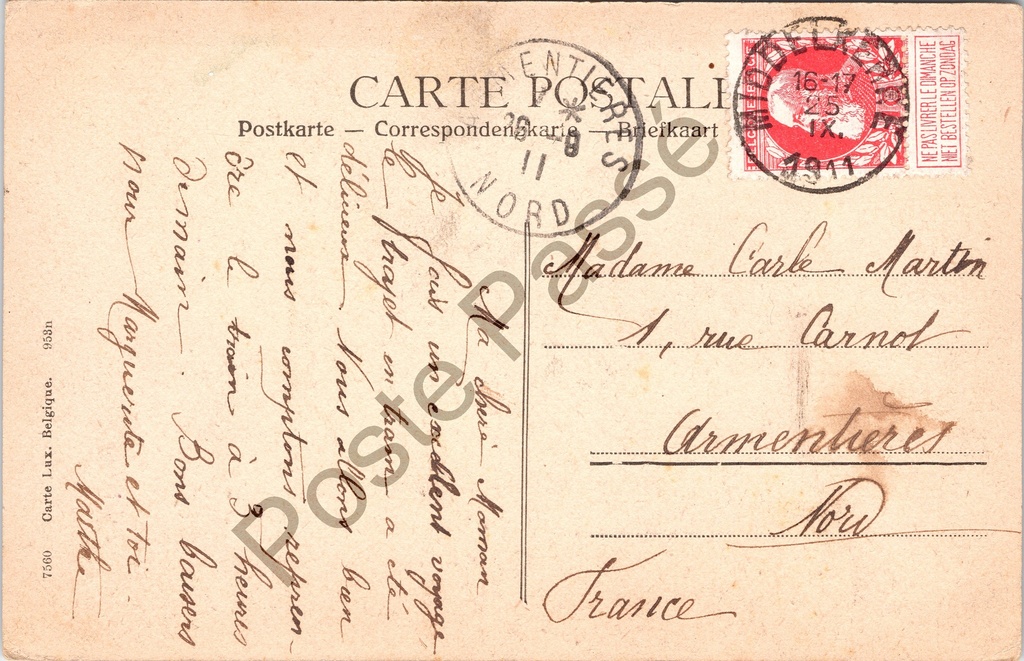 CARTE POSTALE
Postkarte — Correspondenzkarte — Briefkaart
MIDDELKERKE
16-17
25
IX.
1911
NE PAS LIVRER LE DIMANCHE
NIET BESTELLEN OP ZONDAG
ARMENTIERES
26 - 9
11
NORD
Madame Carlé Martin
1, rue Carnot
Armentières
Nord
France
Ma chère Maman
Je fais un excellent voyage,
le trajet en tram a été
délicieux. Nous allons bien
et nous comptons repren-
dre le train à 3 heures
demain. Bons baisers
pour Marguerite et toi.
Marthe
7560 Carte Lux. Belgique. 953n
Poste Passé